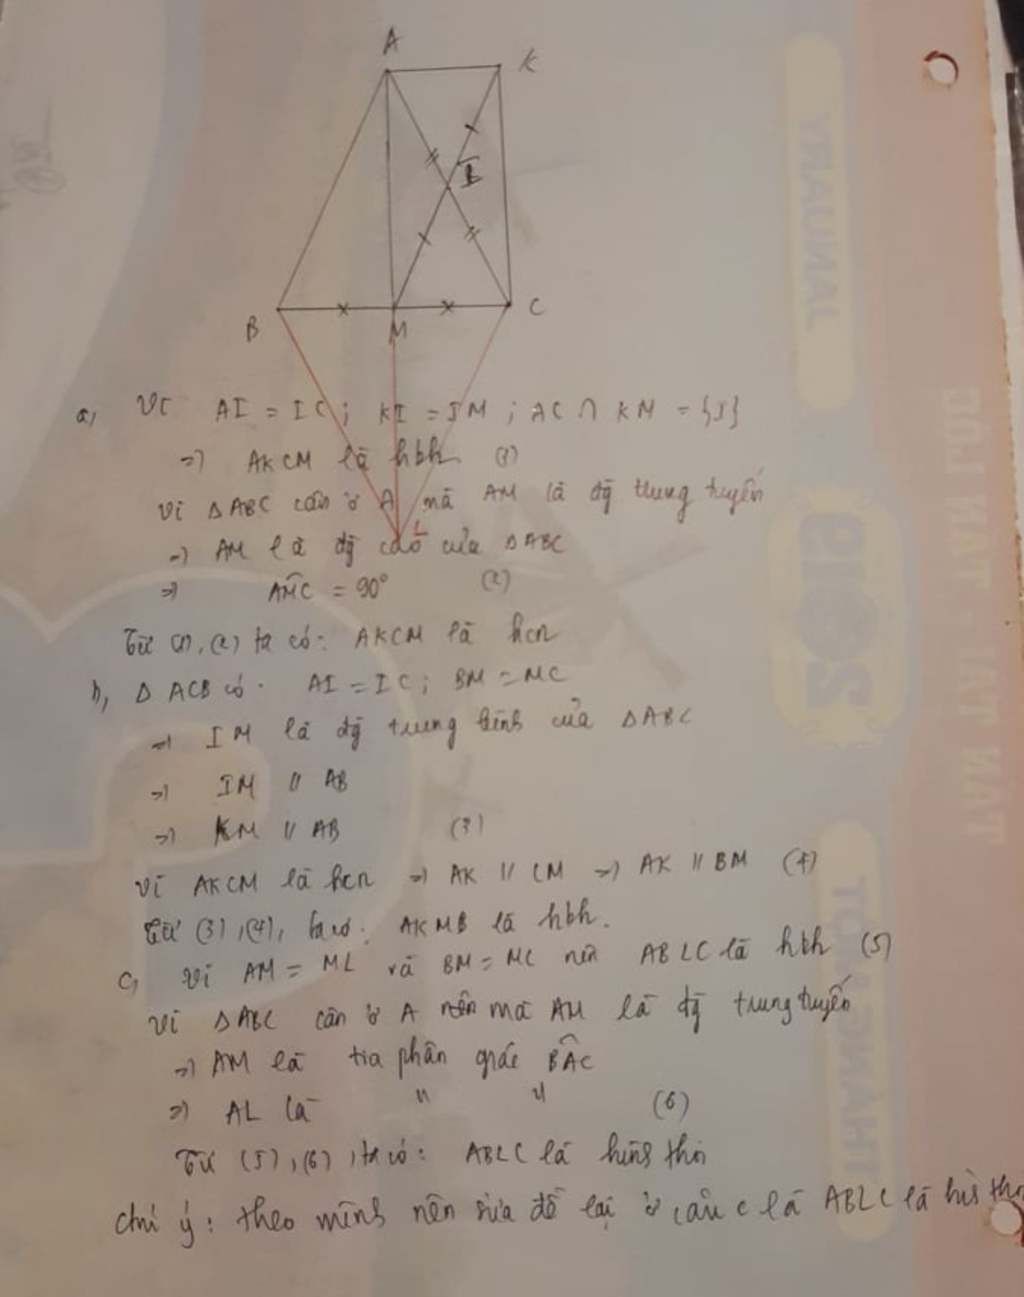 A
K
I
B
M
C
L
a, Vì AI = IC; KI = IM; AC ∩ KM = {I}
=> AKCM là hbh (1)
Vì ΔABC cân ở A mà AM là đg trung tuyến
=> AM là đg cao của ΔABC
=> AMC = 90° (2)
Từ (1), (2) ta có: AKCM là hcn
b, Δ ACB có: AI = IC; BM = MC
=> IM là đg trung bình của ΔABC
=> IM // AB
=> KM // AB (3)
Vì AKCM là hcn => AK // CM => AK // BM (4)
Từ (3), (4), ta có: AKMB là hbh.
c, Vì AM = ML và BM = MC nên ABLC là hbh (5)
Vì ΔABC cân ở A mà AM là đg trung tuyến
=> AM là tia phân giác BAC
=> AL là " " (6)
Từ (5), (6), ta có: ABLC là hình thoi
chú ý: theo mình nên sửa đề lại ở câu c là ABLC là hình tho
JANUARY
2019
THÁNG